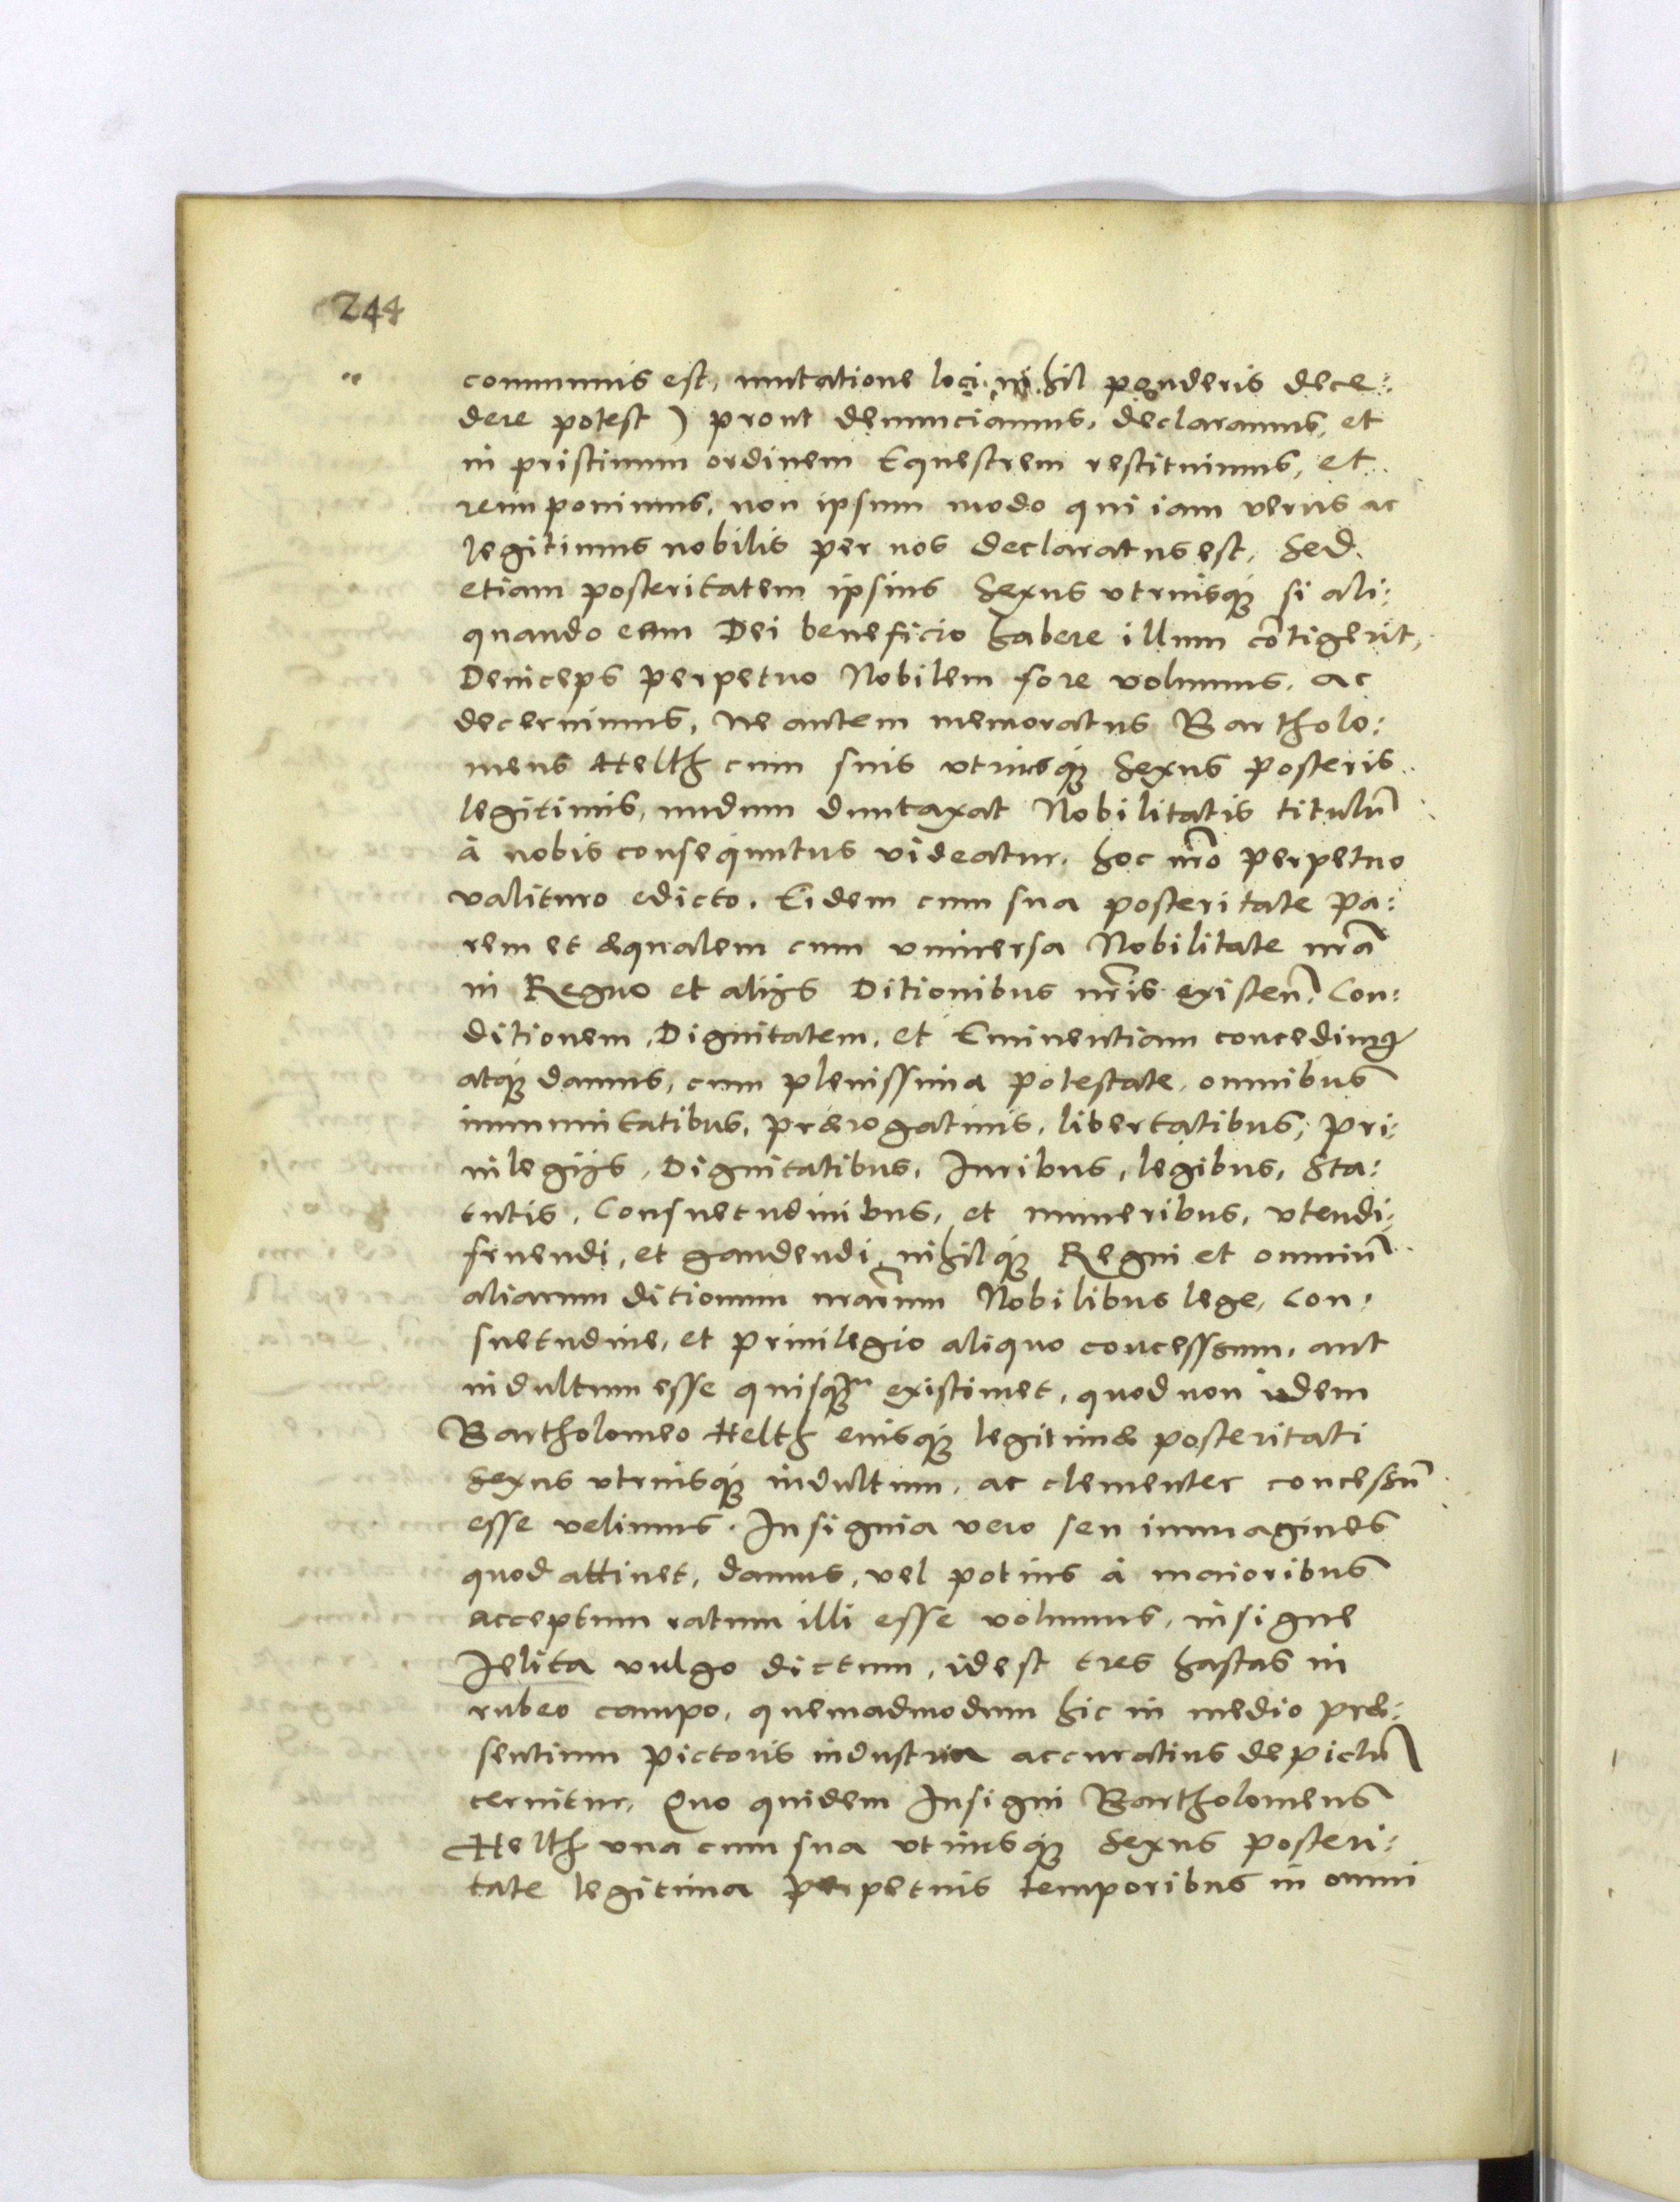 244
communis est, mutatione loci nihil ponderis dece:
dere potest) prout denunciamus, declaramus, et
in pristinum ordinem Equestrem restituimus, et
reimponimus, non ipsum modo qui iam verus ac
legitimus nobilis per nos declaratus est, Sed
etiam posteritatem ipsius Sexus vtriusq́ꝫ si ali:
quando eam Dei beneficio habere illum cōtigerit,
Deinceps perpetuo Nobilem fore volumus, ac
decernimus, Ne autem memoratus Bartholo:
meus Helth cum suis vtriusq́ꝫ Sexus posteris
legitimis, nudum duntaxat Nobilitatis titulū
à nobis consequutus videatur, hoc nr̄o perpetuo
valituro edicto, Eidem cum sua posteritate pa:
rem et æqualem cum vniuersa Nobilitate nr̄a
in Regno et alijs Ditionibus nr̄is existen̄, Con:
ditionem, Dignitatem, et Eminentiam concedimꝰ
atq́ꝫ damus, cum plenissima potestate, omnibus
immunitatibus, prærogatiuis, libertatibus, pri:
uilegijs, Dignitatibus, Iuribus, legibus, Sta:
tutis, Consuetudinibus, et muneribus, vtendi:
fruendi, et gaudendi, nihilq́ꝫ Regni et omniū
aliarum ditionum nr̄arum Nobilibus lege, Con:
suetudine, et priuilegio aliquo concessum, aut
indultum esse quisqꝫm existimet, quod non iidem
Bartholomeo Helth eiusq́ꝫ legitimæ posteritati
Sexus vtriusq́ꝫ indultum, ac clementer concessū
esse velimus. Insignia vero seu immagines
quod attinet, damus, vel potius à maioribus
acceptum ratum illi esse volumus, insigne
Ielita vulgo dictum, idest tres hastas in
rubeo campo, quemadmodum hic in medio præ:
sentium pictoris industria accuratius depictū
cernitur, Quo quidem Insigni Bartholomeus
Helth vna cum sua vtriusq́ꝫ Sexus posteri:
tate legitima perpetuis temporibus in omni